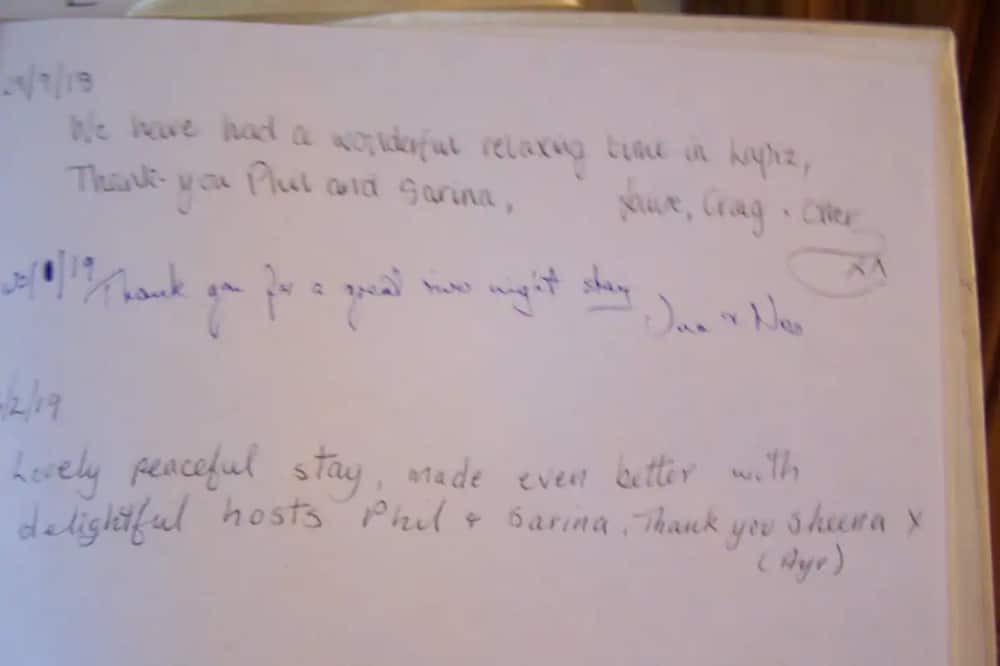 /9/18
We have had a wonderful relaxing time in
Thank you Phil and Sarina, Craig
xx
/19 Thank you for a great night stay
/2/19
Lovely peaceful stay, made even better with
delightful hosts Phil + Sarina. Thank you Sheena x
(Ayr)